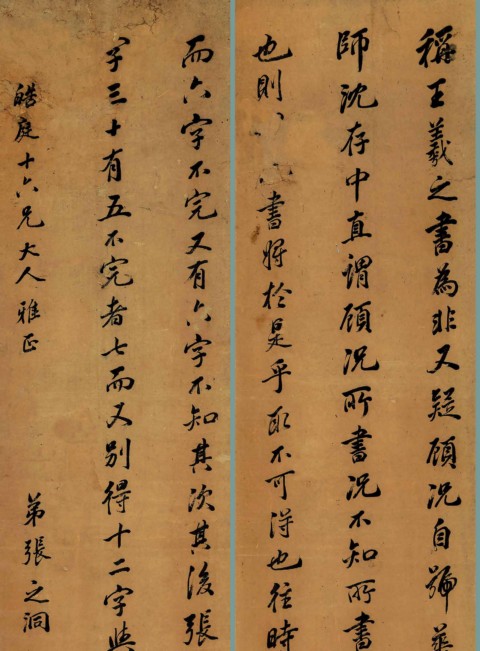 稱王羲之書為非又疑顧況自號華
師沈存中直謂顧況所書況不知所書
也則書將於是乎取不可得也往時
而六字不完又有六字不知其次其後張
字三十有五不完者七而又別得十二字與
皓庭十六兄大人雅正
弟張之洞